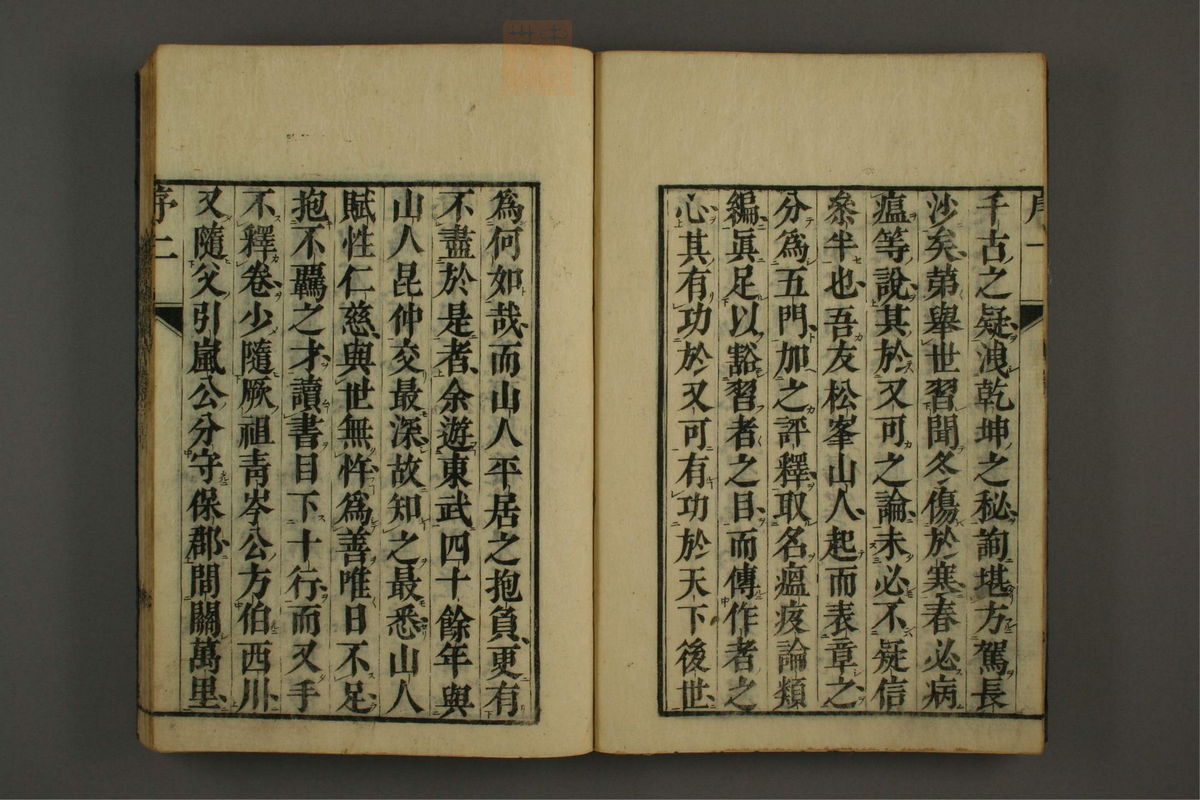 千古之疑洩乾坤之秘詢堪方駕長
沙矣第舉世習聞冬傷於寒春必病
瘟等說其於又可之論未必不疑信
參半也吾友松峯山人起而表章之
分為五門加之評釋取名瘟疫論類
編眞足以豁習者之目而傳作者之
心其有功於又可有功於天下後世
為何如哉而山人平居之抱負更有
不盡於是者余遊東武四十餘年與
山人昆仲交最深故知之最悉山人
賦性仁慈與世無忤為善唯日不足
抱不羈之才讀書目下十行而又手
不釋卷少隨厥祖青岑公方伯西川
又隨父引嵐公分守保郡間關萬里
序二